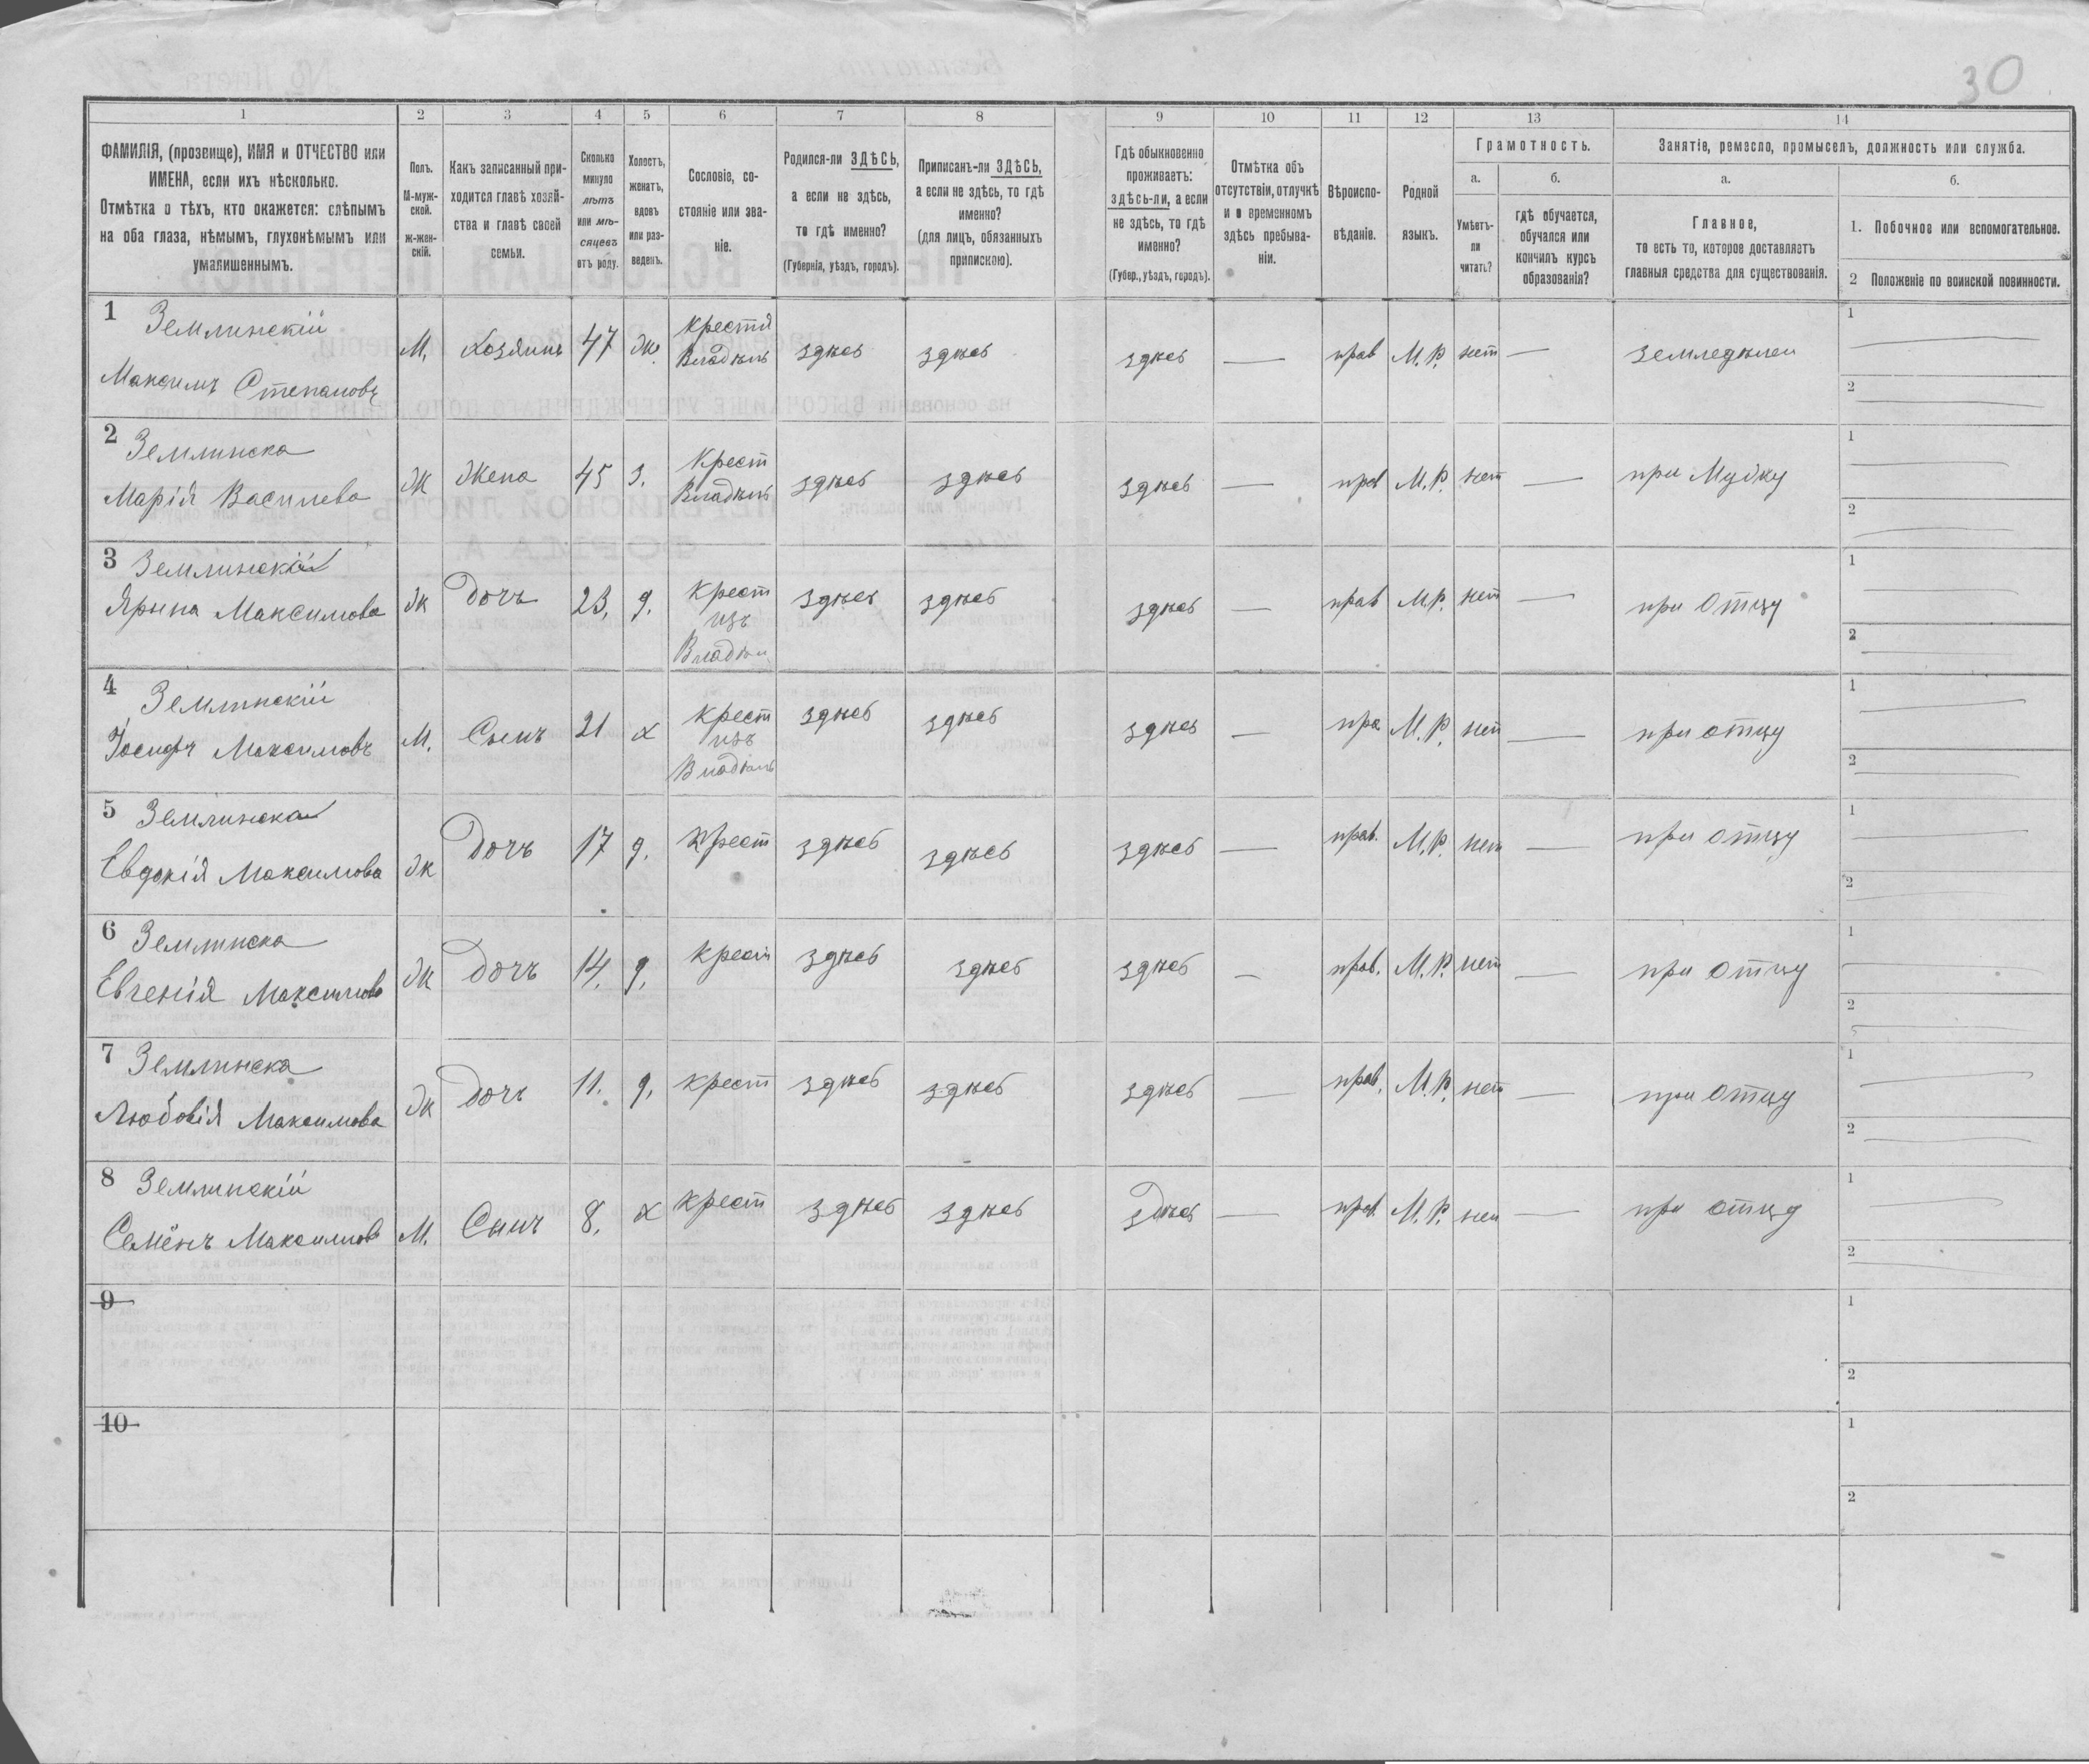 30
1 2 3 4 5 6 7 8 9 10 11 12 13 14
ФАМИЛІЯ, (прозвище), ИМЯ и ОТЧЕСТВО или
ИМЕНА, если ихъ нѣсколько.
Отмѣтка о тѣхъ, кто окажется: слѣпымъ
на оба глаза, нѣмымъ, глухонѣмымъ или
умалишеннымъ.
Полъ.
М-муж-
ской.
Ж-жен-
скій.
Какъ записанный при-
ходится главѣ хозяй-
ства и главѣ своей
семьи.
Сколько
минуло
лѣтъ
или мѣ-
сяцевъ
отъ роду.
Холостъ,
женатъ,
вдовъ
или раз-
веденъ.
Сословіе, со-
стояніе или зва-
ніе.
Родился-ли ЗДѢСЬ,
а если не здѣсь,
то гдѣ именно?
(Губернія, уѣздъ, городъ).
Приписанъ-ли ЗДѢСЬ,
а если не здѣсь, то гдѣ
именно?
(для лицъ, обязанныхъ
припискою).
Гдѣ обыкновенно
проживаетъ:
здѣсь-ли, а если
не здѣсь, то гдѣ
именно?
(Губер., уѣздъ, городъ).
Отмѣтка объ
отсутствіи, отлучкѣ
и о временномъ
здѣсь пребыва-
ніи.
Вѣроиспо-
вѣданіе.
Родной
языкъ.
Грамотность.
а.
Умѣетъ-
ли
читать?
б.
гдѣ обучается,
обучался или
кончилъ курсъ
образованія?
Занятіе, ремесло, промыселъ, должность или служба.
а.
Главное,
то есть то, которое доставляетъ
главныя средства для существованія.
б.
1. Побочное или вспомогательное.
2 Положеніе по воинской повинности.
1 Землинскій
Максимъ Степановъ
М. Хозяинъ 47 Ж. Крестя
Владѣль здѣсь здѣсь здѣсь — прав М.Р. нет — земледѣлеи
1
2
2 Землинска
Марія Василева
Ж Жена 45 З. Крест
Владѣль здѣсь здѣсь здѣсь — прав М.Р. нет — при Мужу
1
2
3 Землинскій
Ярына Максимова
Ж Дочъ 23, д. Крест
изъ
Владѣл здѣсь здѣсь здѣсь — прав М.Р. нет — при Отцу
1
2
4 Землинскій
Іосифъ Максимовъ
М. Сынъ 21 х Крест
изъ
Владѣль здѣсь здѣсь здѣсь — пра М.Р. нет — при отцу
1
2
5 Землинска
Евдокія Максимова
Ж Дочъ 17 д. Крест здѣсь здѣсь здѣсь — прав. М.Р. нет — при отцу
1
2
6 Землинска
Евгенія Максимова
Ж Дочъ 14, д. Крест здѣсь здѣсь здѣсь — прав. М.Р. нет — при отцу
1
2
7 Землинска
Любовія Максимова
Ж Дочъ 11. д. крест здѣсь здѣсь здѣсь — прав. М.Р. нет — при Отцу
1
2
8 Землинскій
Семёнъ Максимов
М. Сынъ 8. х крест здѣсь здѣсь здѣсь — прав. М.Р. нет — при отцу
1
2
9
1
2
10
1
2